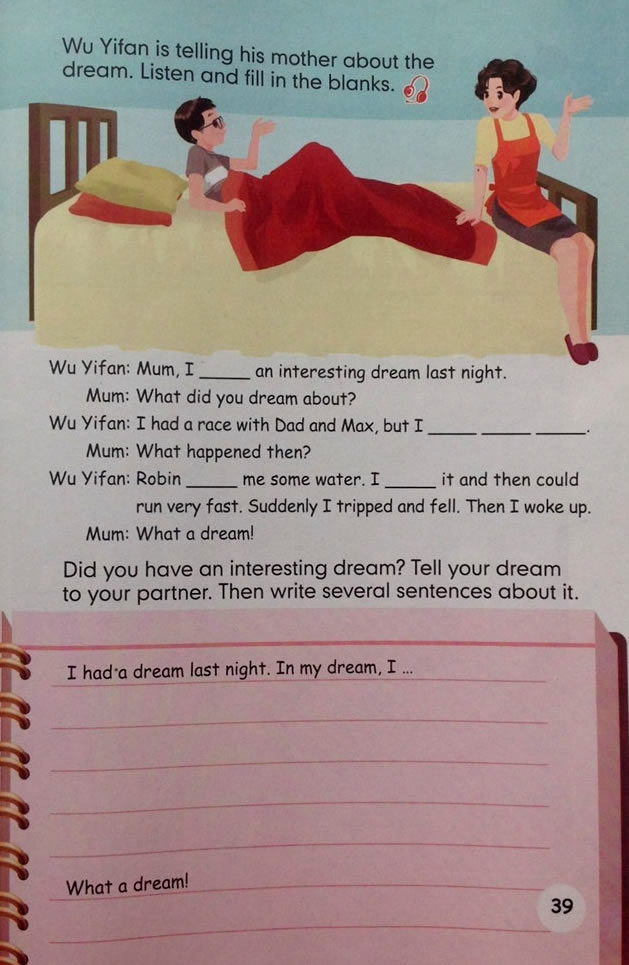 Wu Yifan is telling his mother about the
dream. Listen and fill in the blanks.
Wu Yifan: Mum, I _____ an interesting dream last night.
Mum: What did you dream about?
Wu Yifan: I had a race with Dad and Max, but I _____ _____ _____.
Mum: What happened then?
Wu Yifan: Robin _____ me some water. I _____ it and then could
run very fast. Suddenly I tripped and fell. Then I woke up.
Mum: What a dream!
Did you have an interesting dream? Tell your dream
to your partner. Then write several sentences about it.
I had a dream last night. In my dream, I ...
What a dream!
39